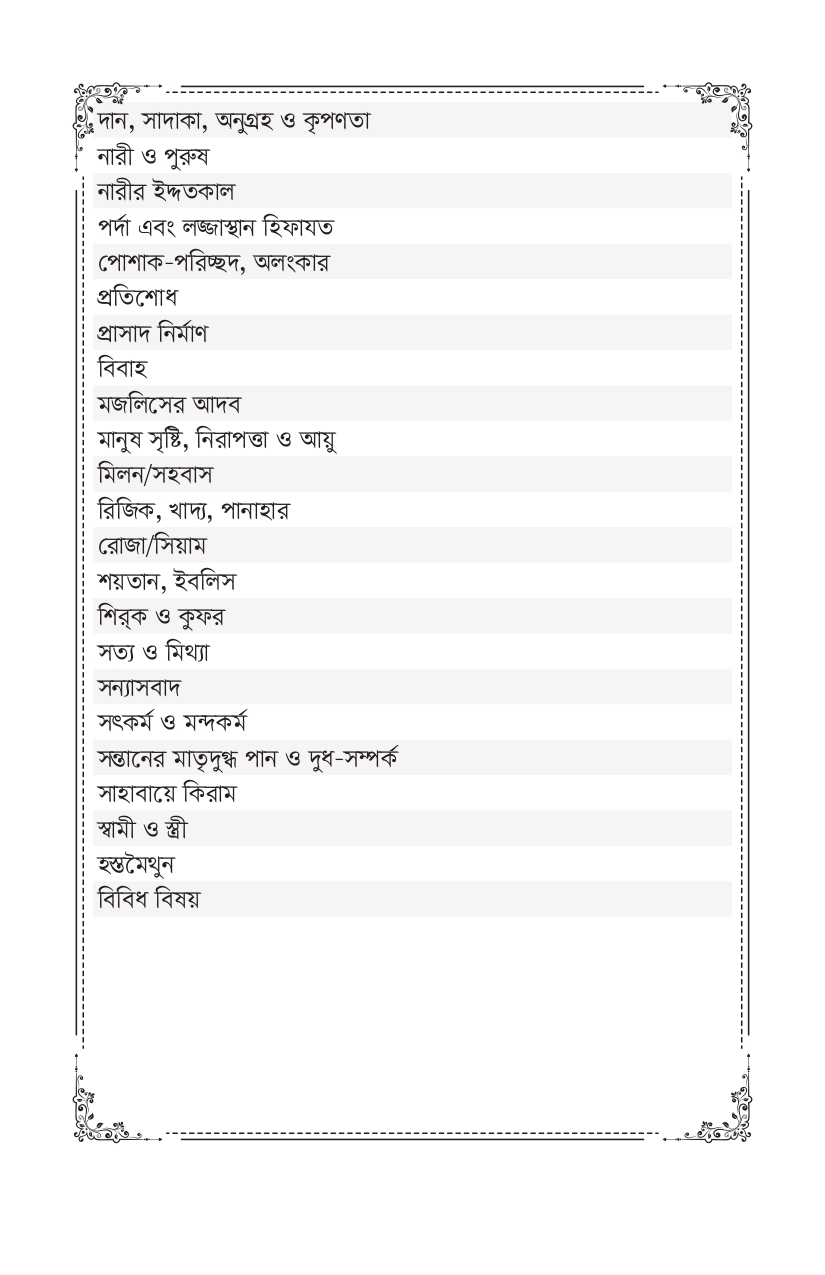 দান, সাদাকা, অনুগ্রহ ও কৃপণতা
নারী ও পুরুষ
নারীর ইদ্দতকাল
পর্দা এবং লজ্জাস্থান হিফাযত
পোশাক-পরিচ্ছদ, অলংকার
প্রতিশোধ
প্রাসাদ নির্মাণ
বিবাহ
মজলিসের আদব
মানুষ সৃষ্টি, নিরাপত্তা ও আয়ু
মিলন/সহবাস
রিজিক, খাদ্য, পানাহার
রোজা/সিয়াম
শয়তান, ইবলিস
শির্‌ক ও কুফর
সত্য ও মিথ্যা
সন্যাসবাদ
সৎকর্ম ও মন্দকর্ম
সন্তানের মাতৃদুগ্ধ পান ও দুধ-সম্পর্ক
সাহাবায়ে কিরাম
স্বামী ও স্ত্রী
হস্তমৈথুন
বিবিধ বিষয়